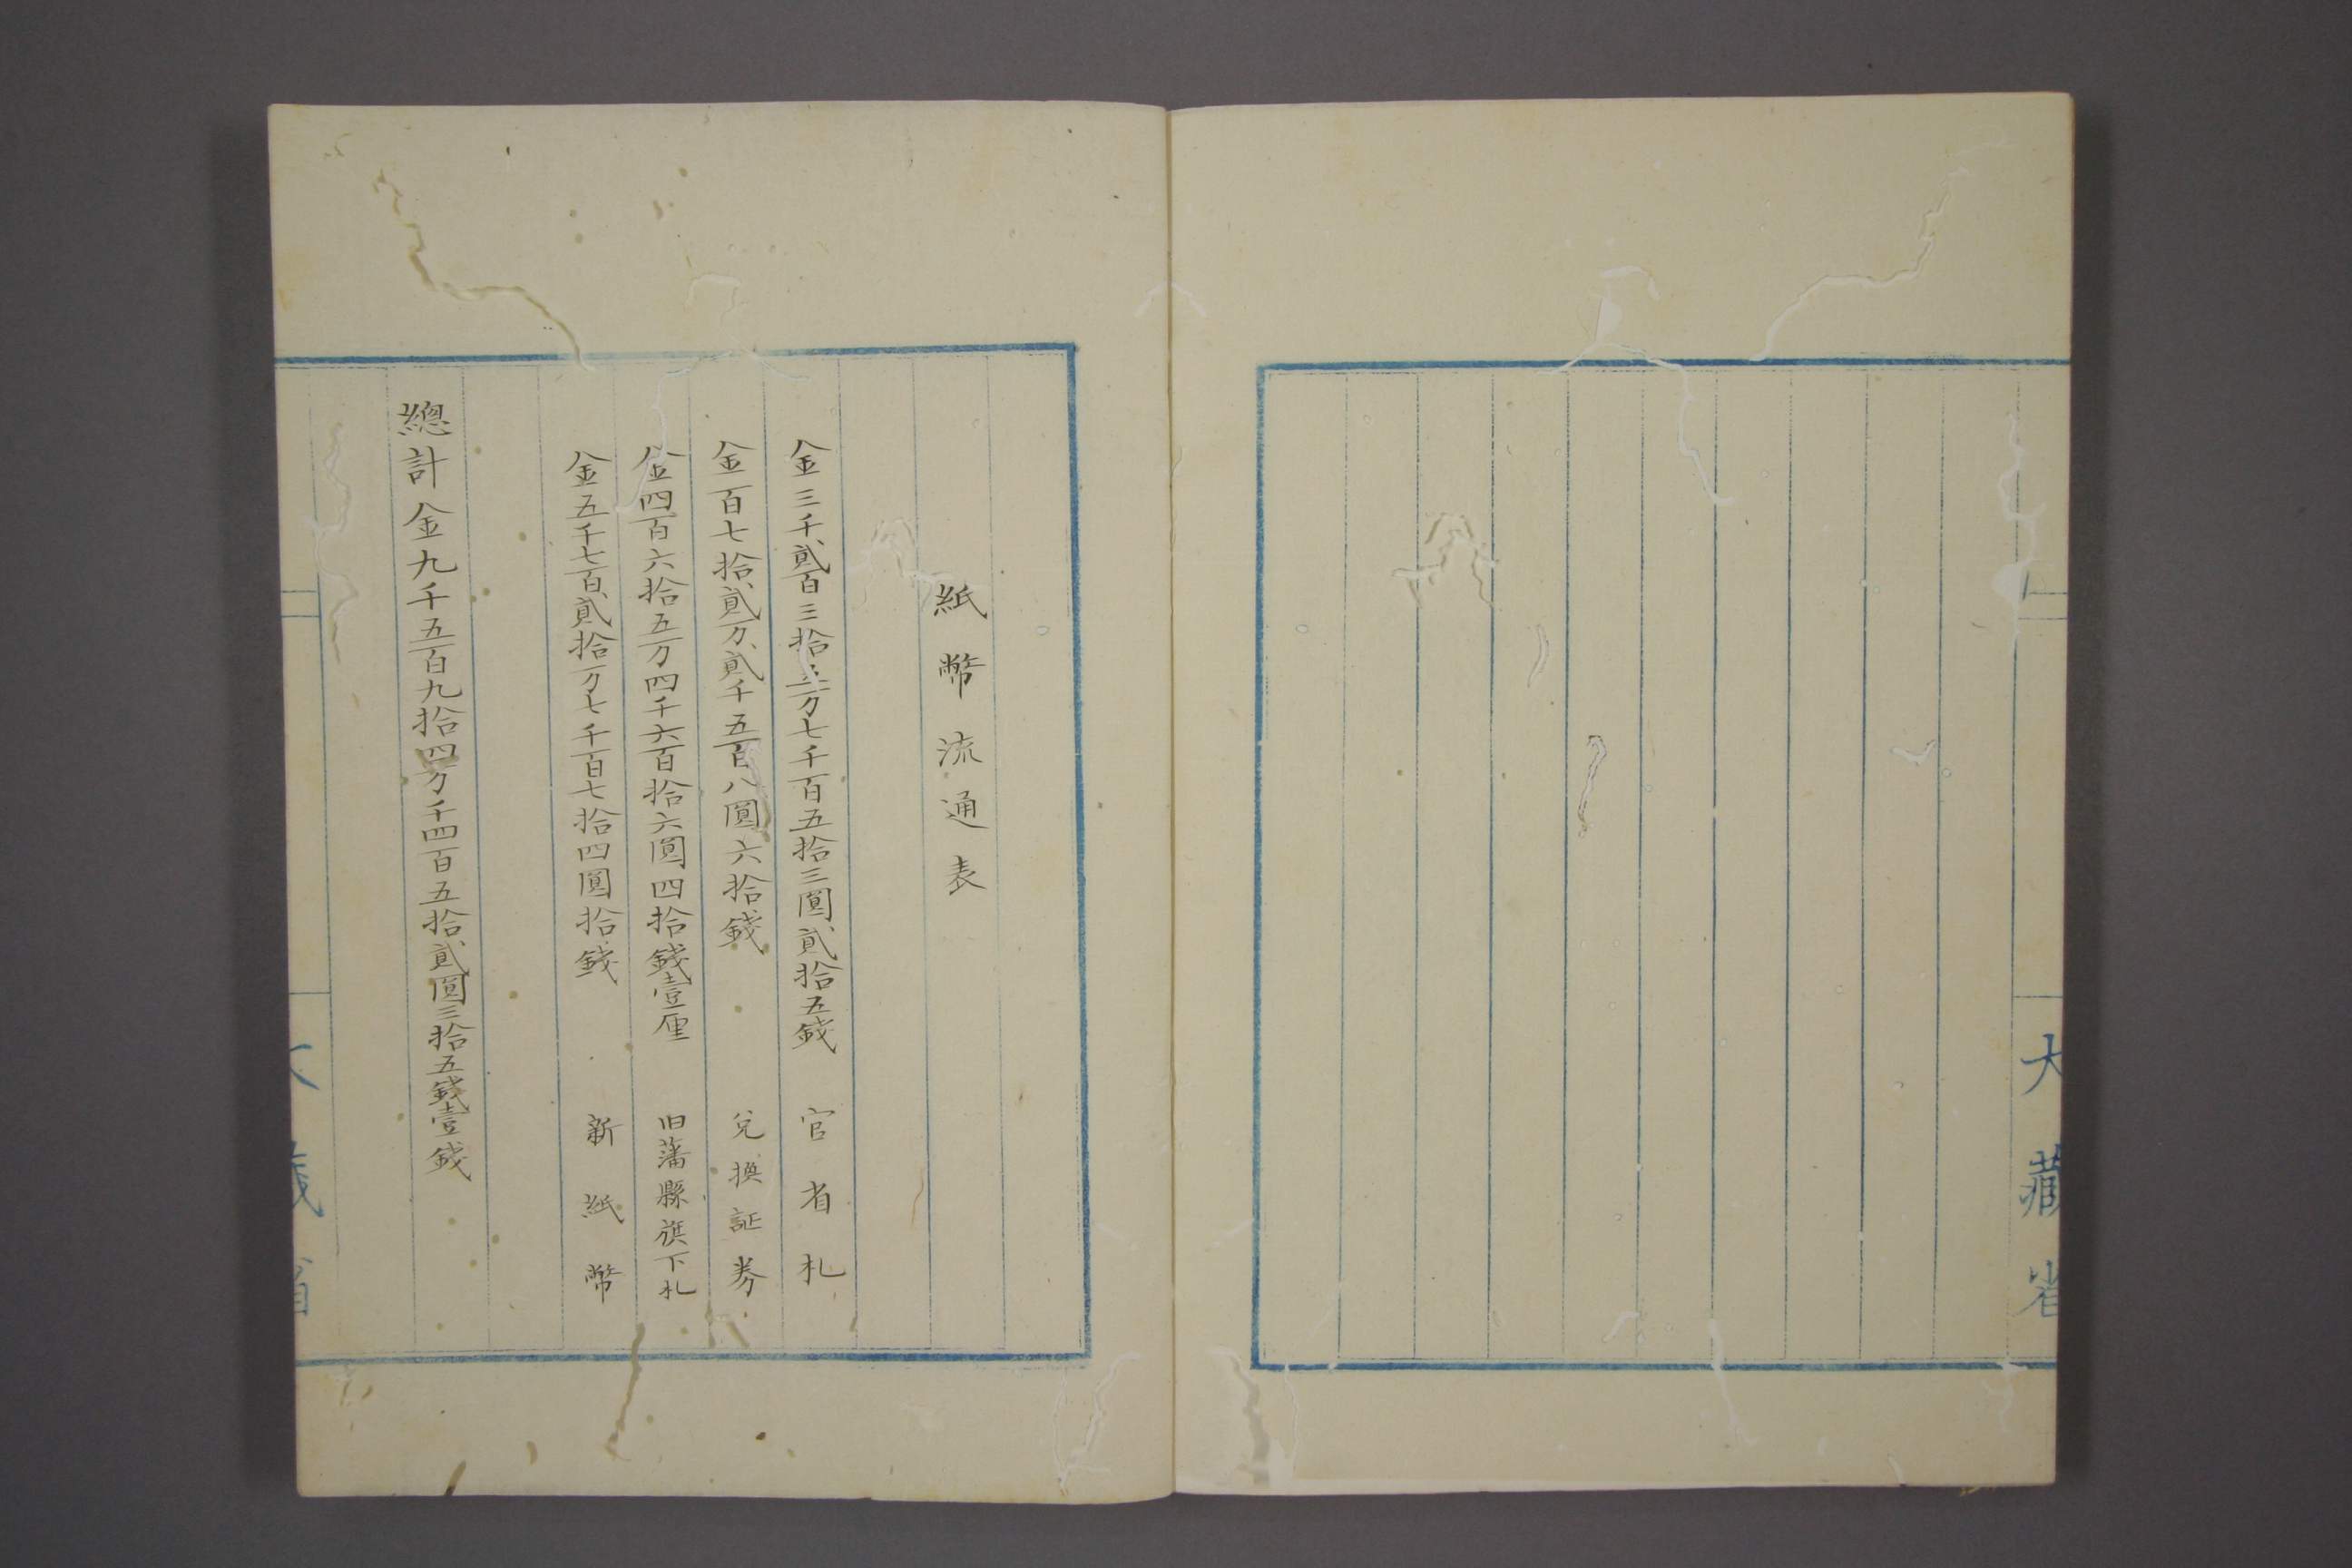 大藏省
紙幣流通表
金三千貳百三拾五万七千百五拾三圓貳拾五錢 官省札
金百七拾貳万貳千五百八圓六拾錢 兌換証券
金四百六拾五万四千六百拾六圓四拾錢壹厘 旧藩縣旗下札
金五千七百貳拾万七千百七拾四圓拾錢 新紙幣
總計金九千五百九拾四万千四百五拾貳圓三拾五錢壹錢
大藏省